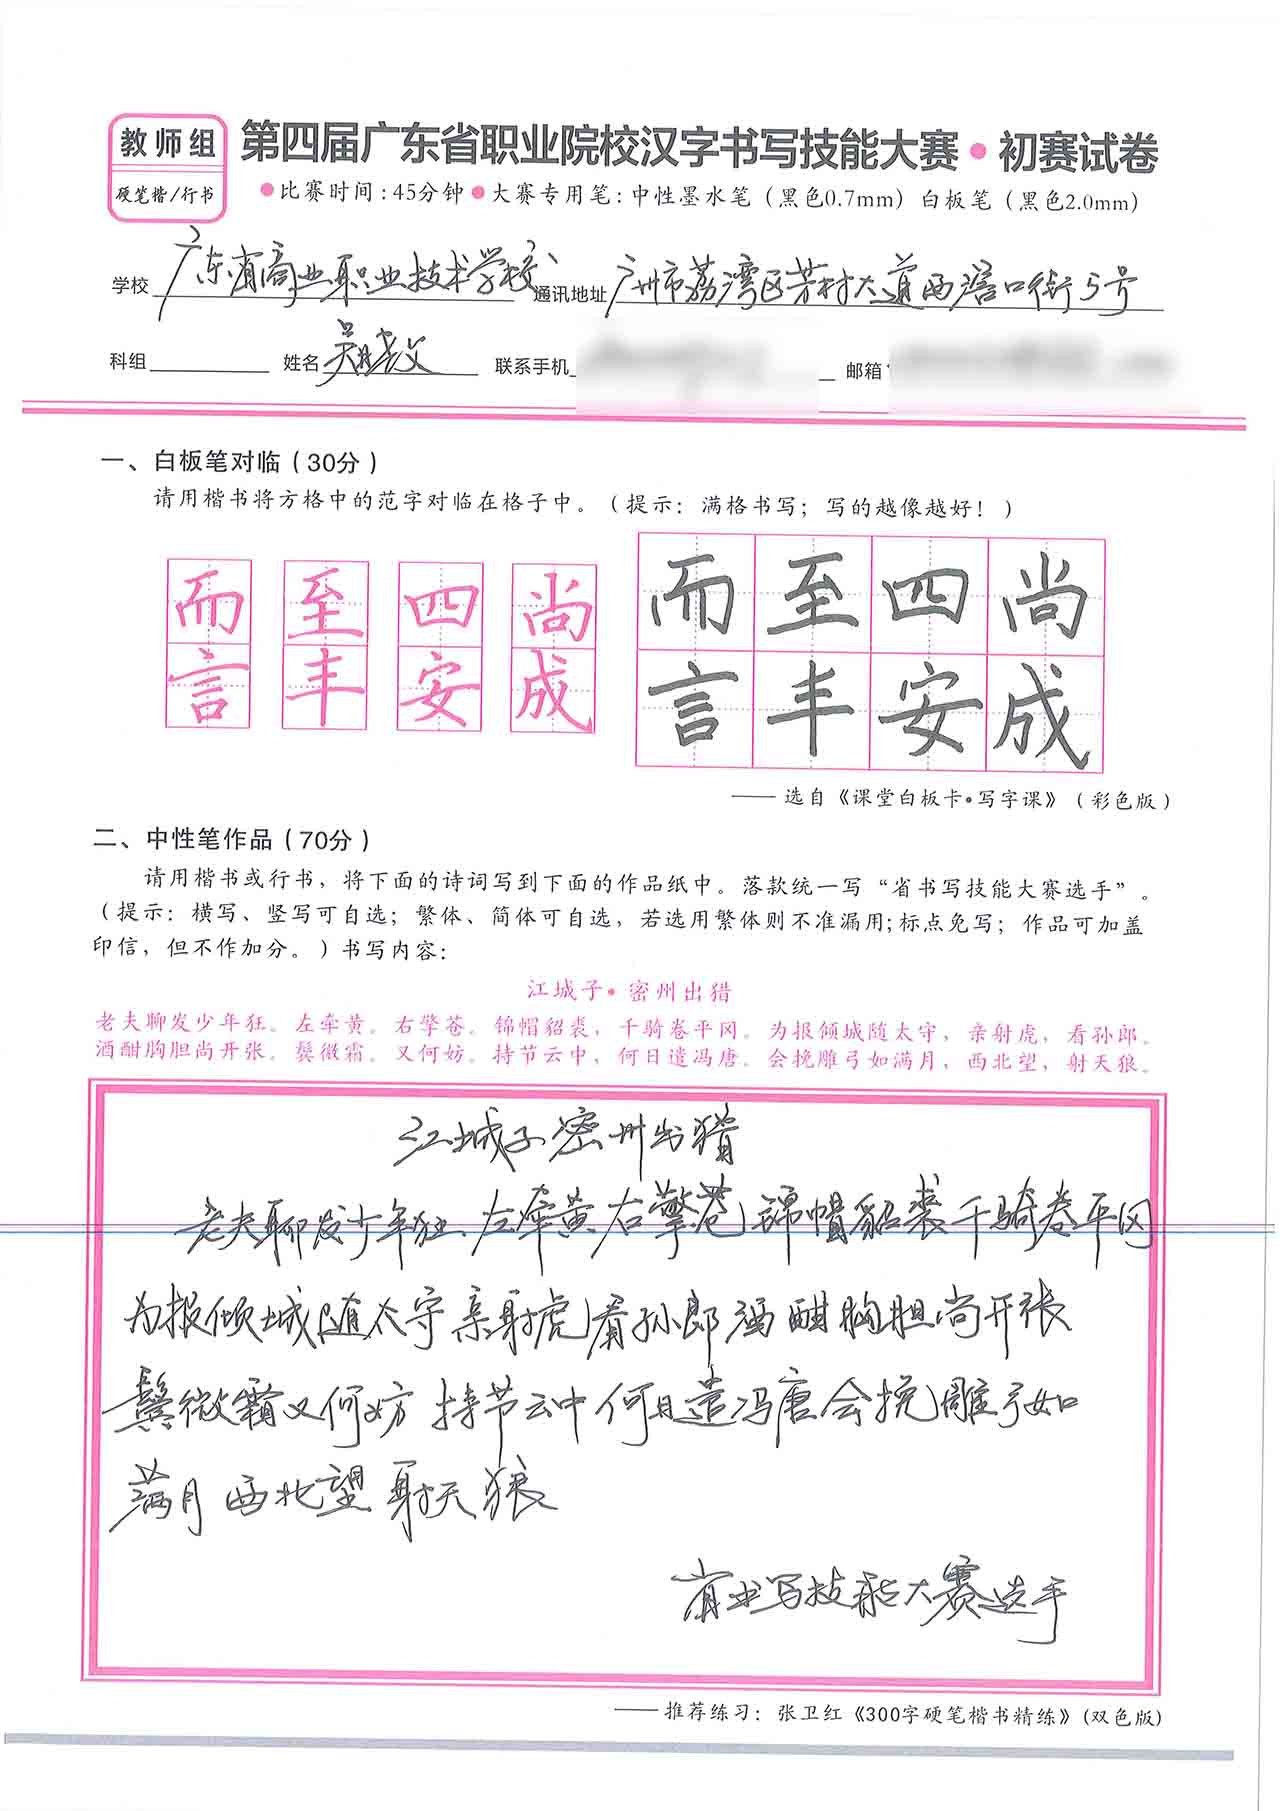 教师组
硬笔楷/行书
第四届广东省职业院校汉字书写技能大赛•初赛试卷
●比赛时间:45分钟●大赛专用笔:中性墨水笔（黑色0.7mm）白板笔（黑色2.0mm）
学校 广东省商业职业技术学校 通讯地址 广州市荔湾区芳村大道西滘口街5号
科组 姓名 联系手机 邮箱
一、白板笔对临（30分）
请用楷书将方格中的范字对临在格子中。（提示：满格书写；写的越像越好！）
而 至 四 尚 而 至 四 尚
言 丰 安 成 言 丰 安 成
——选自《课堂白板卡•写字课》（彩色版）
二、中性笔作品（70分）
请用楷书或行书，将下面的诗词写到下面的作品纸中。落款统一写“省书写技能大赛选手”。
（提示：横写、竖写可自选；繁体、简体可自选，若选用繁体则不准漏用;标点免写；作品可加盖
印信，但不作加分。）书写内容：
江城子•密州出猎
老夫聊发少年狂。左牵黄。右擎苍。锦帽貂裘，千骑卷平冈。为报倾城随太守，亲射虎，看孙郎。
酒酣胸胆尚开张。鬓微霜。又何妨。持节云中，何日遣冯唐。会挽雕弓如满月，西北望，射天狼。
江城子密州出猎
老夫聊发少年狂左牵黄右擎苍锦帽貂裘千骑卷平冈
为报倾城随太守亲射虎看孙郎酒酣胸胆尚开张
鬓微霜又何妨持节云中何日遣冯唐会挽雕弓如
满月西北望射天狼
省书写技能大赛选手
——推荐练习：张卫红《300字硬笔楷书精练》(双色版)